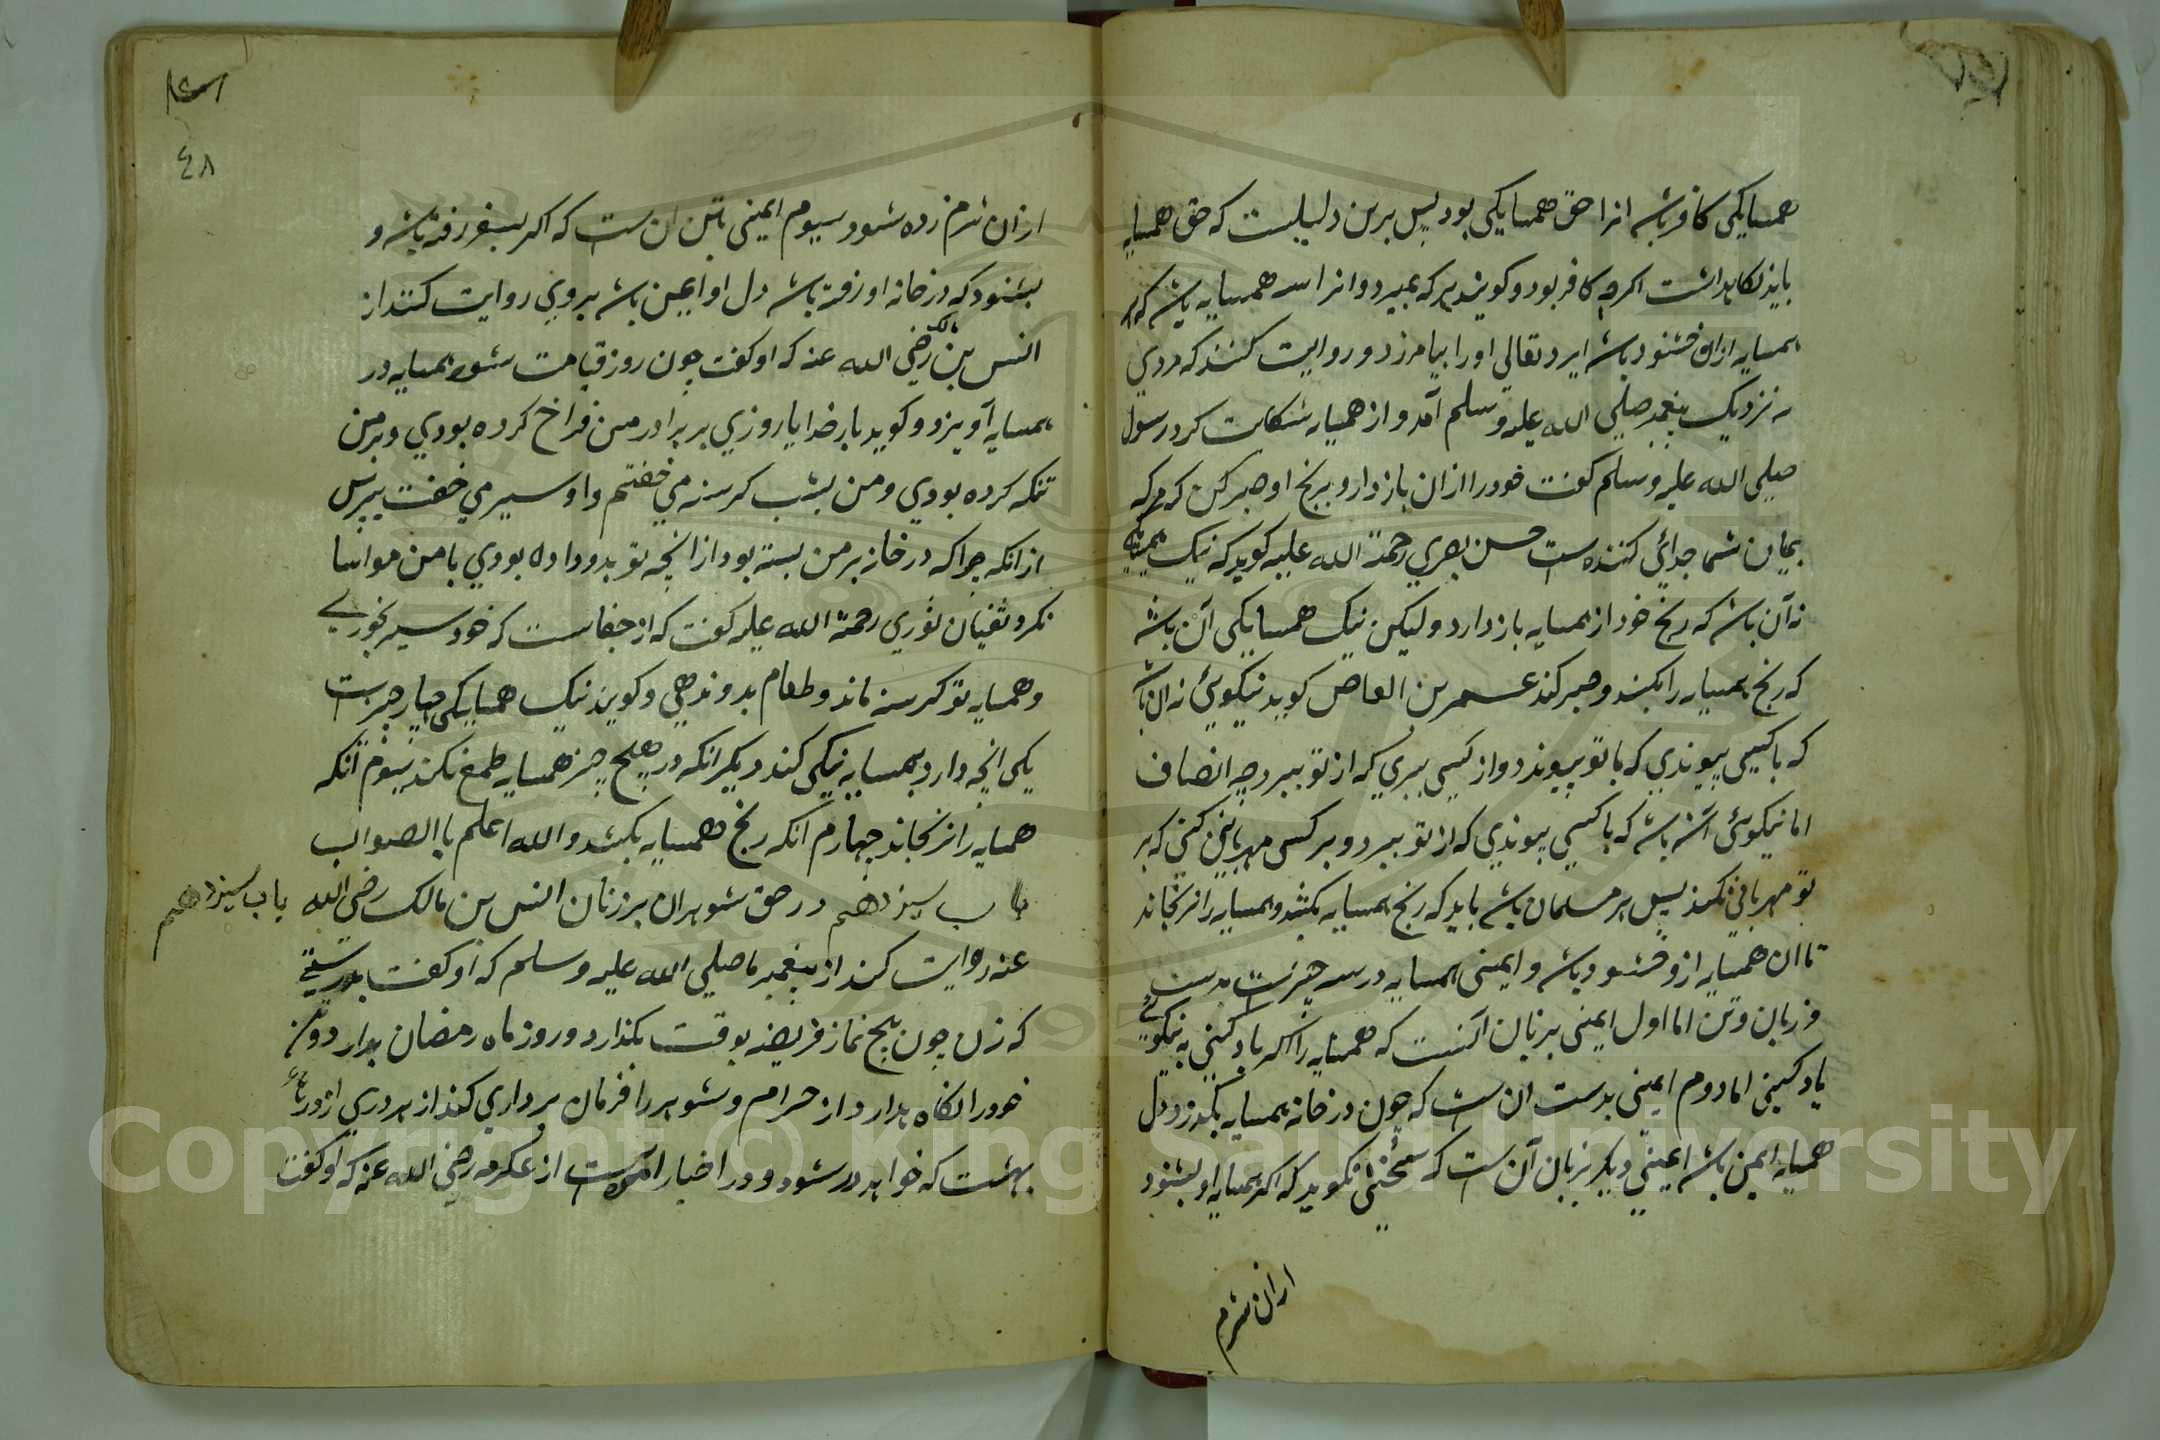 همسایکی کافر باشد انرا حق همسایکی بود پس برین دلیلست که حق همسایه
باید نکاهداشت اکرچه کافر بود و کویند هرکه بمیرد و انرا سه همسایه باشد که هر
همسایه ازان خشنود باشد ایزد تعالی اورا بیامرزد و روایت کنند که مردي
نزدیک پیغمبر صلی الله علیه وسلم آمد و از همسایه شکایت کرد رسول
صلی الله علیه وسلم کفت خودرا ازان بازدار و برنج او صبر کن که مرکه
بمیان شما جدائي کننده است حسن بصري رحمة الله علیه کوید که نیک همسایکی
نه آن باشد که رنج خود از همسایه بازدارد ولیکن نیک همسایکی آن باشد
که رنج همسایه را بکشد و صبر کند عمر بن العاص کوید نیکویي نه ان باشد
که باکسی پیوندي که باتو پیوندد و از کسی ببري که از تو ببرد چه انصاف
اما نیکوئي آن باشد که باکسی پیوندي که از تو ببرد و بر کسی مهرباني کني که بر
تو مهرباني نکند پس هر مسلمان باشد باید که رنج همسایه بکشد و همسایه را نرنجاند
تا ان همسایه ازو خشنود باشد و ایمنی همسایه در سه چیزست بدست
و زبان و تن اما اول ایمنی بزبان آنست که همسایه را اکر یاد کنی به نیکوئي
یاد کنی اما دوم ایمنی بدست ان ست که چون در خانه همسایه بکذرد دل
همسایه ایمن باشد ایمنی دیکر بزبان آن ست که سخنی نکوید که اکر همسایه او بشنود
ازان شرم
٤٨
ازان شرم زده شود سیوم ایمنی بتن ان ست که اکر بسفر رفته باشد و
بشنود که در خانه او رفته باشد دل او ایمن باشد بروي روایت کنند از
انس بن مالک رضي الله عنه که او کفت چون روز قیامت شود همسایه در
همسایه آویزد و کوید بار خدایا روزي بر برادر من فراخ کرده بودي و بر من
تنک کرده بودي و من بشب کرسنه مي خفتم و او سیر مي خفت بپرس
از انکه چرا که در خانه بر من بسته بود از انچه تو بدو داده بودي با من مواسا
نکرد ثفیان ثوري رحمة الله علیه کفت که از جفاست که خود سیر بخوري
و همسایه تو کرسنه ماند و طعام بدو ندهي و کویند نیک همسایکی چهار چیزست
یکی انچه دارد بهمسایه نیکی کند دیکر انکه در هیچ چیز همسایه طمع نکند سیوم آنکه
همسایه را نرنجاند چهارم انکه رنج همسایه بکشد والله اعلم باالصواب
باب سیزدهم در حق شوهران بر زنان انس بن مالک رضي الله
باب سیزدهم
عنه روایت کند از پیغمبر ما صلی الله علیه وسلم که او کفت بدرستي
که زن چون پنج نماز فریضه بوقت بکذارد و روز ماه رمضان بدارد و تن
خودرا نکاه دارد از حرام و شوهر را فرمان برداري کند از هر دري از درهاء
بهشت که خواهد در شود و در اخبار آمده است از عکرمه رضي الله عنه که او کفت